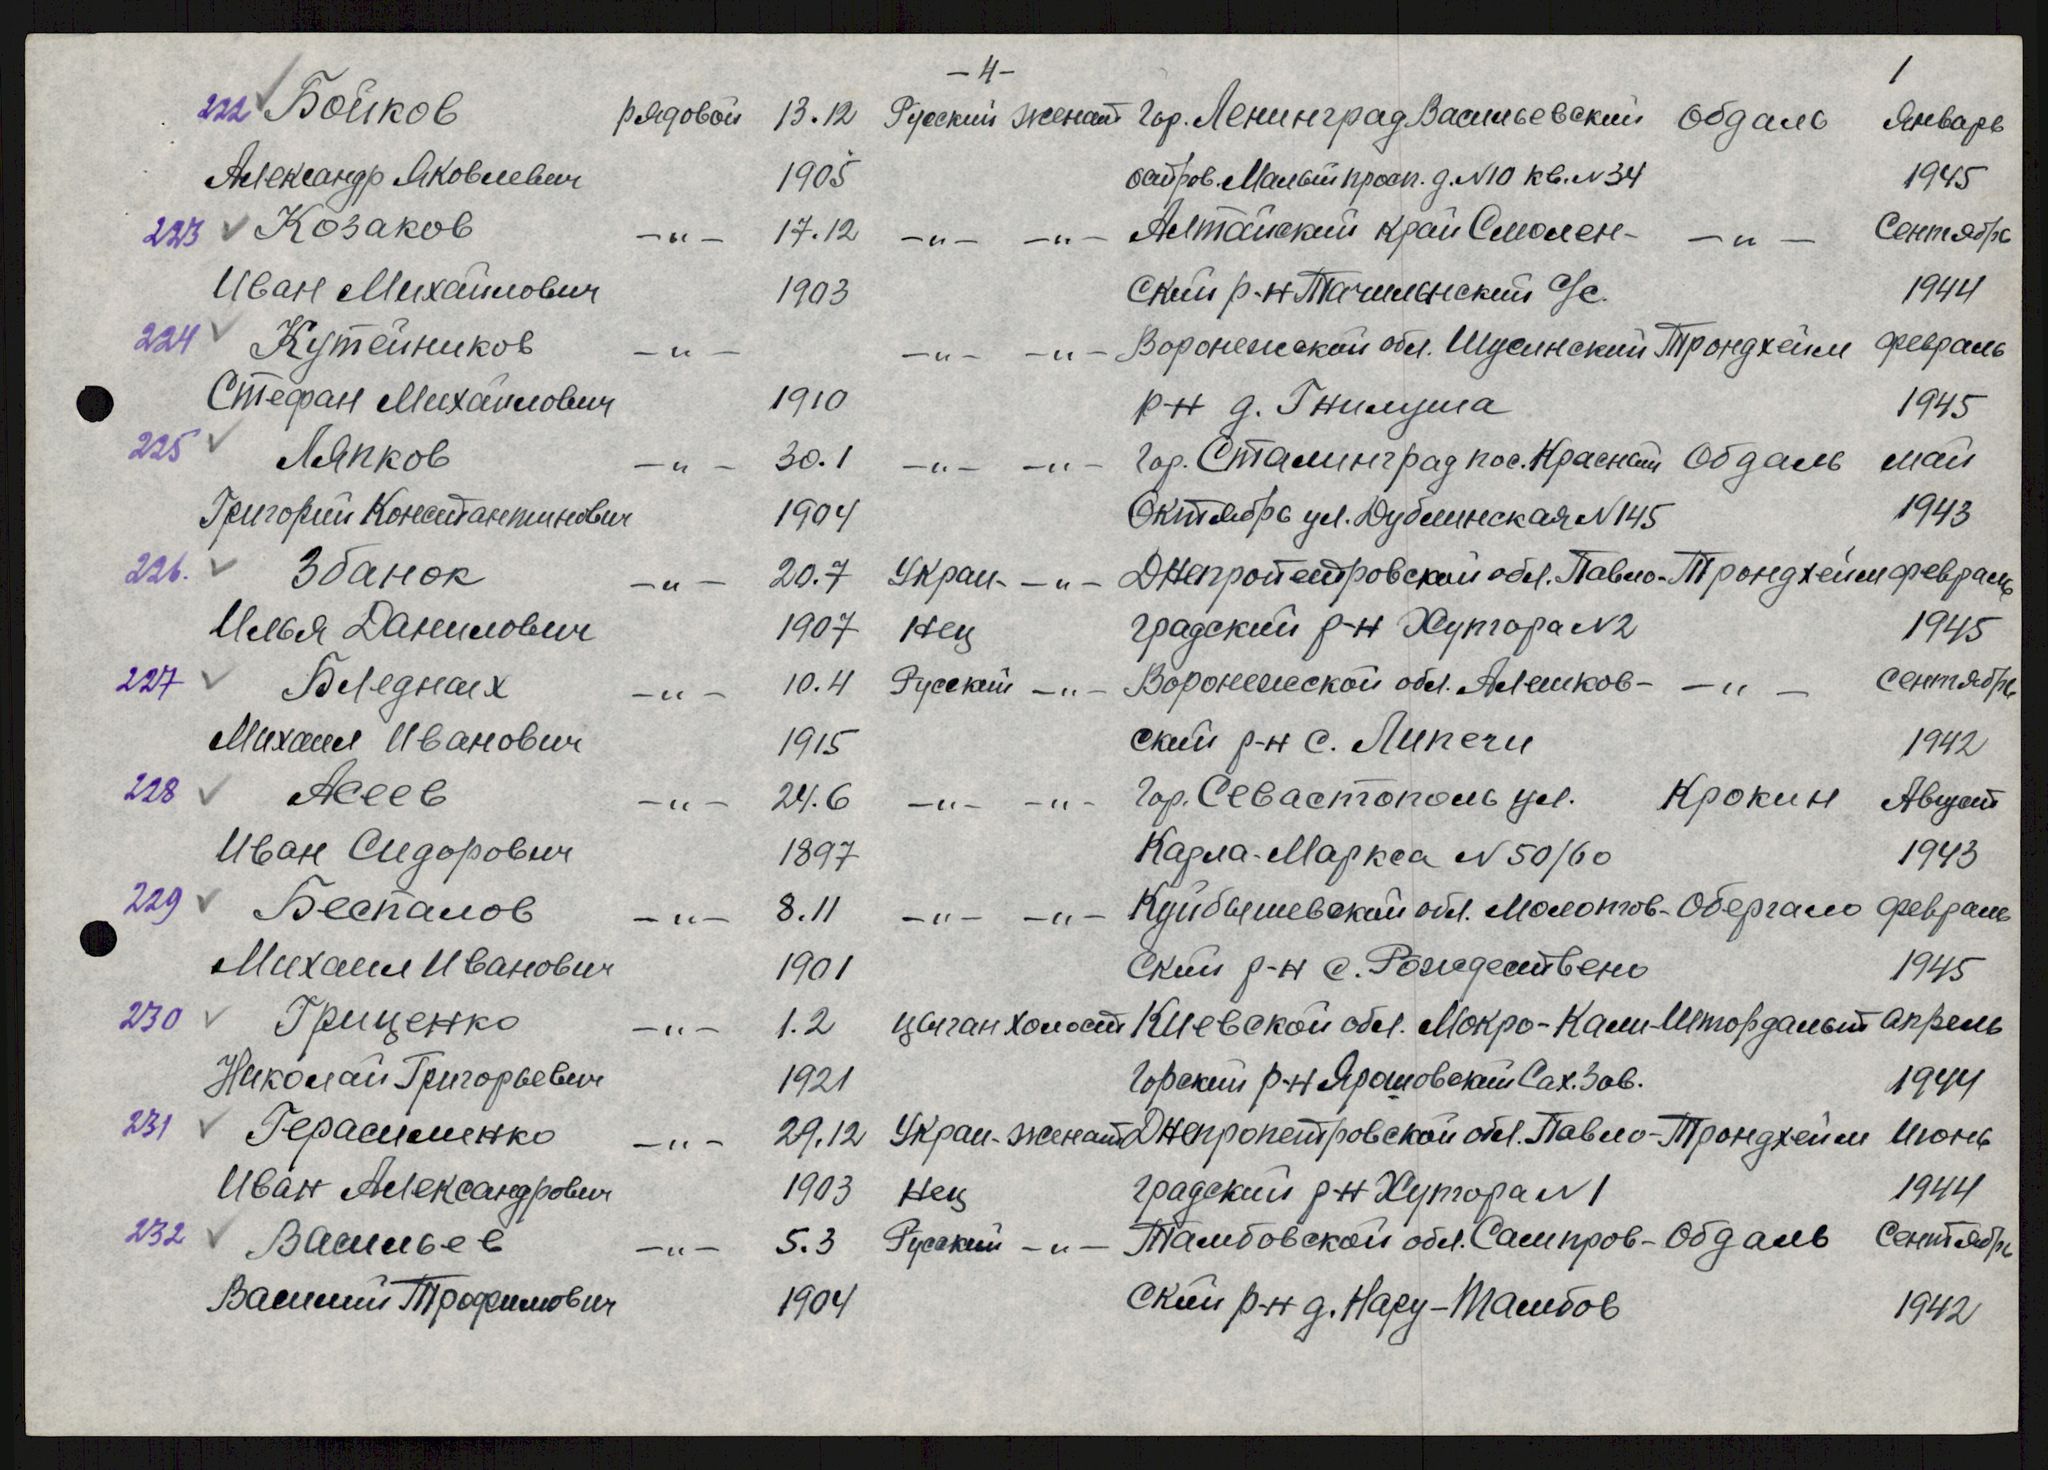 -4- 1
222 Бойков рядовой 13.12 Русский женат Гор. Ленинград Васильевский Обдаль Январь
Александр Яковлевич 1905 остров. Малый просп. д. N10 кв. N34 1945
223 Козаков -"- 17.12 -"- -"- Алтайский край Смолен- -"- Сентябрь
Иван Михайлович 1903 ский р-н Точильнский С/с. 1944
224 Кутейников -"- -"- -"- Воронежской обл. Трондхейм февраль
Стефан Михайлович 1910 р-н д. Гнилуша 1945
225 Ляпков -"- 30.1 -"- -"- Гор. Сталинград пос. Красный Обдаль май
Григорий Константинович 1904 Октябрь ул. Дублинская N145 1943
226. Збанок -"- 20.7 Украи- -"- Днепропетровской обл. Павло- Трондхейм февраль
Илья Данилович 1907 нец градский р-н Хутора N2 1945
227 Бледных -"- 10.4 Русский -"- Воронежской обл. Алешков- -"- Сентябрь
Михаил Иванович 1915 ский р-н с. Липечи 1942
228 Асеев -"- 24.6 -"- -"- Гор. Севастополь ул. Крокин Август
Иван Сидорович 1897 Карла-Маркса N50/60 1943
229 Беспалов -"- 8.11 -"- -"- Куйбышевский обл. Молотов- Обергало февраль
Михаил Иванович 1901 ский р-н с. Рождествено 1945
230 Гриценко -"- 1.2 цыган холост Киевской обл. Мокро-Кали- Штордалыт апрель
Николай Григорьевич 1921 горский р-н Ярошовский Сах. Зав. 1944
231 Герасименко -"- 29.12 Украи- женат Днепропетровской обл. Павло- Трондхейм Июнь
Иван Александрович 1903 нец градский р-н Хутора N1 1944
232 Васильев -"- 5.3 Русский -"- Тамбовской обл. Сампров- Обдаль Сентябрь
Василий Трофимович 1904 ский р-н д. Нару-Тамбов 1942